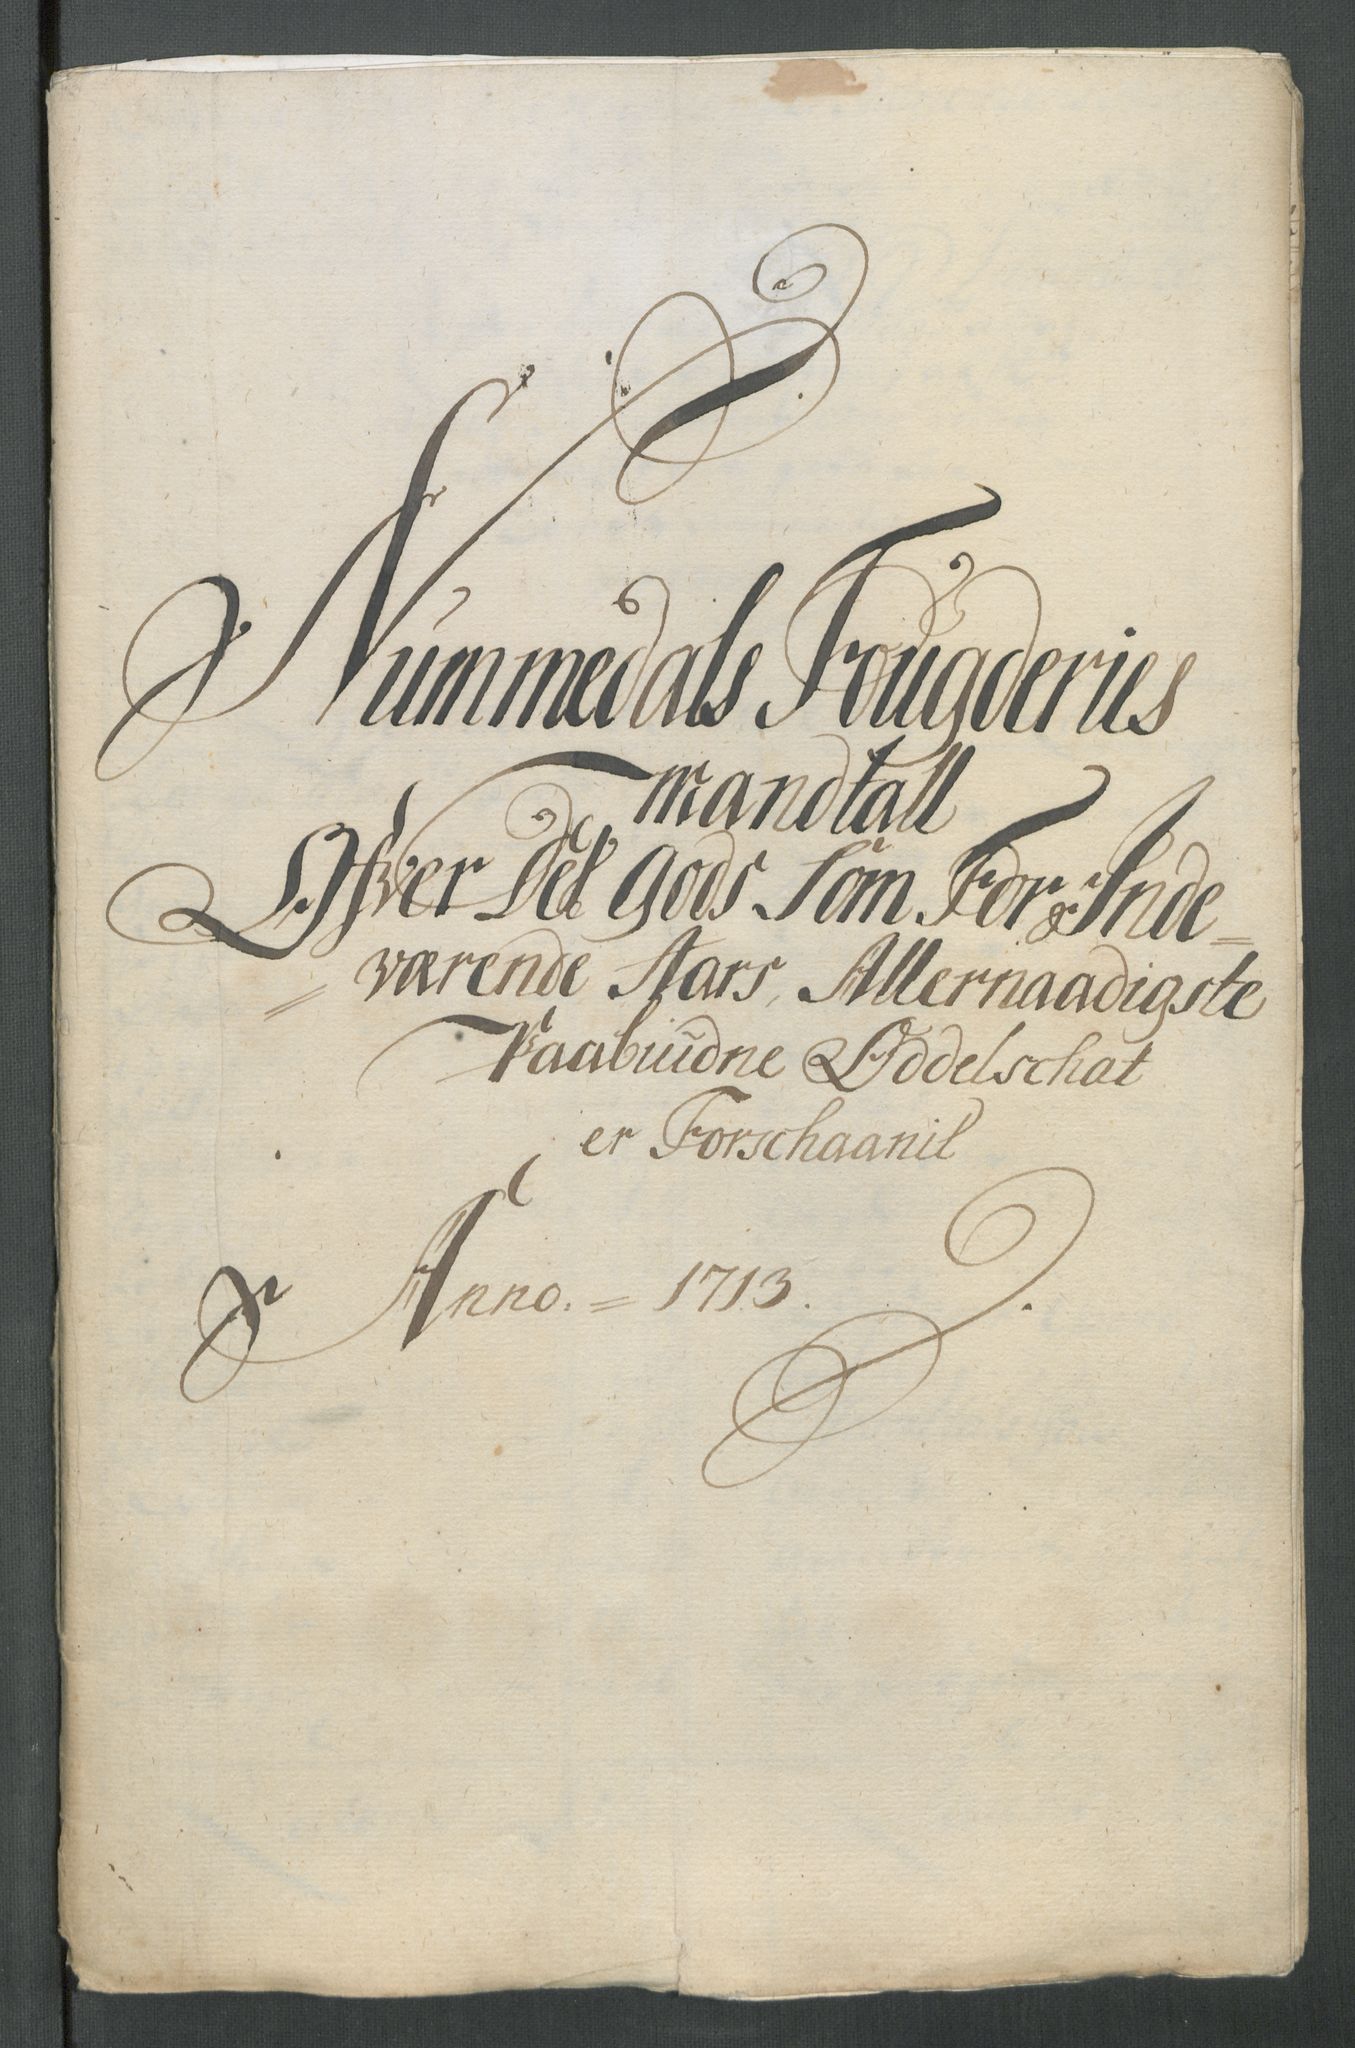 Nummedals Fougderies
mandtall
Ofver Det gods Som For Inde=
=værende Aars, Allernaadigste
Paabuudne Oddelschat
er Forschaanit
Anno. = 1713.